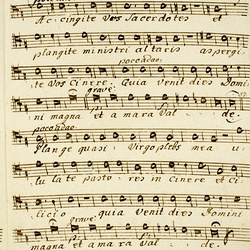 Accingite Vos Sacerdotes et
plangite ministri altaris aspergi
poco ado:
te Vos Cinere. Quia venit dies Domi
grave
ni magna et amara Val - de.
poco ado:
Plange quasi Virgo plebs mea u
lu la te pasto - res in Cinere et Ci
licio quia Venit dies Domini
grave
magna et amara val - de.